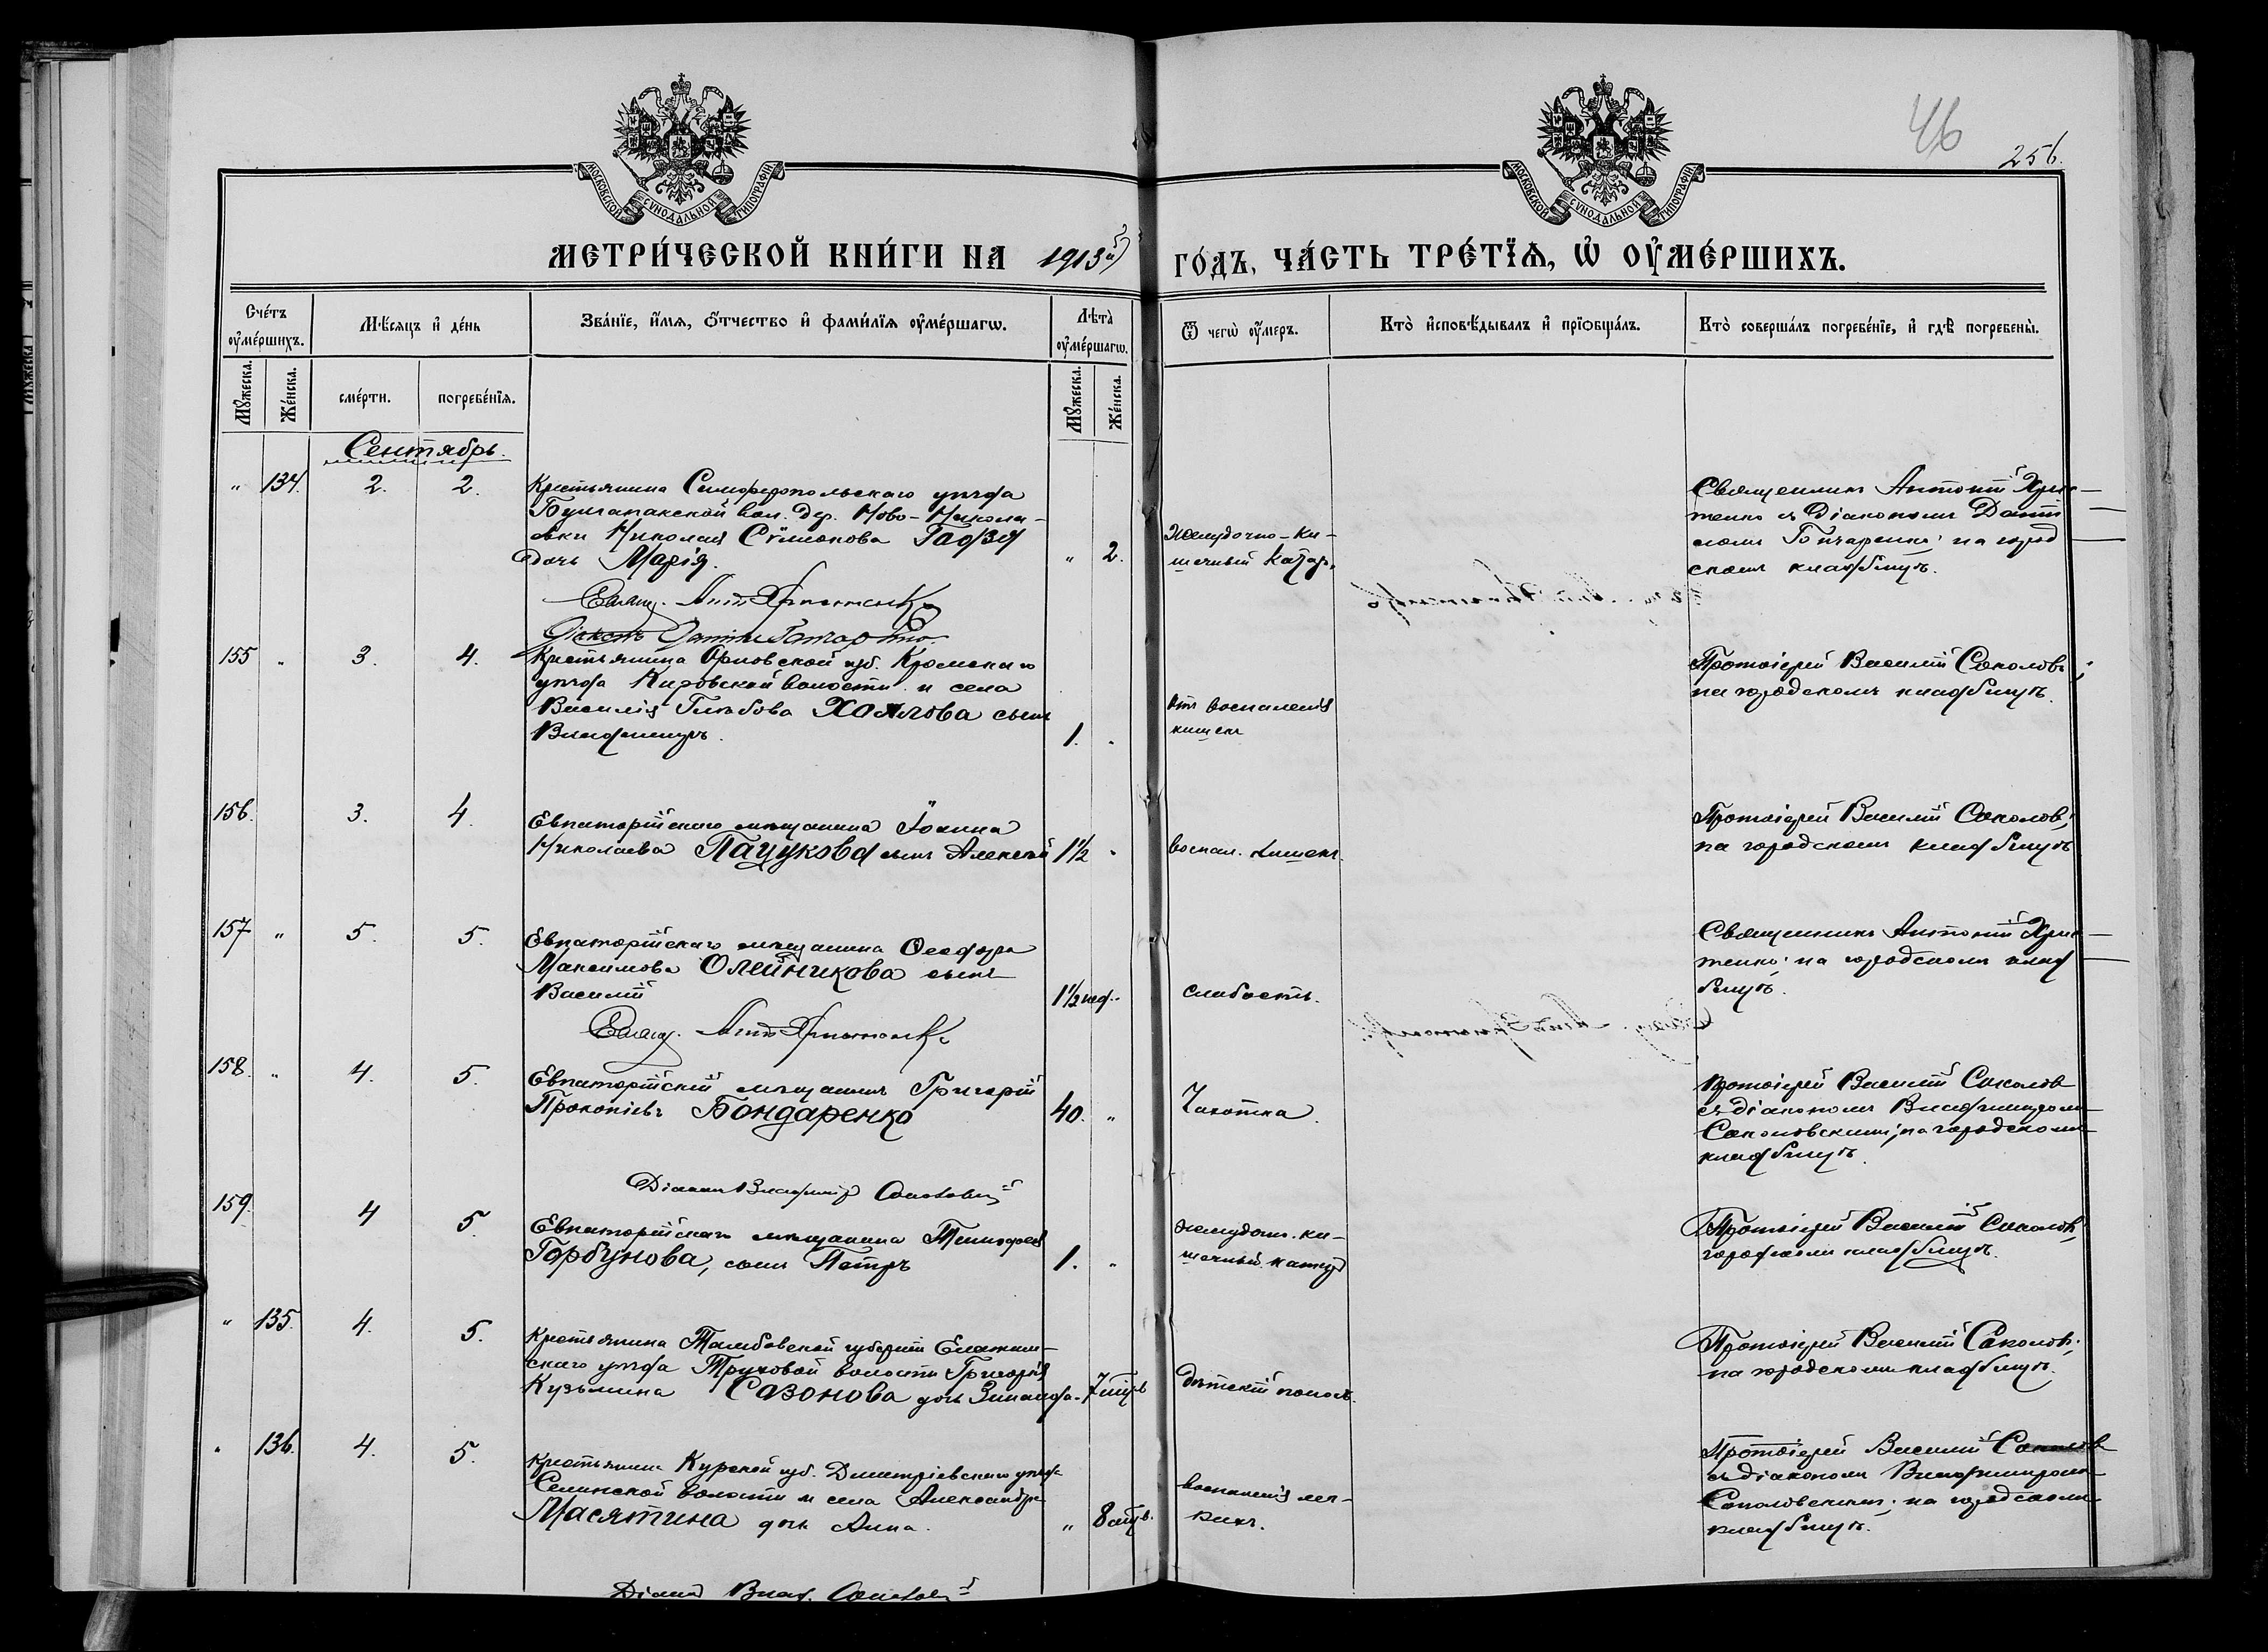 46
256.
МОСКОВСКОЙ СУНОДАЛЬНОЙ ТИПОГРАФІИ
МОСКОВСКОЙ СУНОДАЛЬНОЙ ТИПОГРАФІИ
МЕТРИ́ЧЕСКОЙ КНИ́ГИ НА 1913й ГО́ДЪ, ЧА́СТЬ ТРЕ́ТІѦ, Ѡ҆ ОУ҆МЕ́РШИХЪ.
Сче́тъ оу҆ме́ршихъ.
Мѣ́сяцъ и҆ де́нь
Зва́нїе, и҆́мѧ, ѻ҆́тчество и҆ фами́лїѧ оу҆ме́ршагѡ.
Лѣта̀ оу҆ме́ршагѡ.
Ѿ чегѡ̀ оу҆́меръ.
Кто̀ и҆сповѣ́дывалъ и҆ прїѻбща́лъ.
Кто̀ соверша́лъ погребе́нїе, и҆ гдѣ̀ погребены̀.
Му́жеска.
Же́нска.
сме́рти.
погребе́нїѧ.
Му́жеска.
Же́нска.
Сентябрь.
" 134. 2. 2.
Крестьянина Симферопольскаго уѣзда
Булганакской вол. дер. Ново-Никола-
евки Николая Сѵмеонова
дочь Марія.
" 2.
Желудочно-ки-
шечный катар.
Священникъ Антоній Хрис
тенко съ Діакономъ Дани
ломъ Гончаренко; на город
скомъ кладбищѣ.
155 " 3. 4.
Крестьянина Орловской губ. Кромскаго
уѣзда Кировской волости и села
Василія Глѣбова Хохлова сынъ
Владимиръ.
1. "
отъ воспаленія
кишекъ
Протоіерей Василій Соколовъ;
на городскомъ кладбищѣ.
156. 3. 4.
Евпаторійскаго мѣщанина Іоанна
Николаева Пацукова сынъ Алексѣй
1½ "
воспал. кишекъ.
Протоіерей Василій Соколовъ;
на городскомъ кладбищѣ
157 " 5. 5.
Евпаторійскаго мѣщанина Ѳеодора
Максимова Олейникова сынъ
Василій
1½ нед. "
слабость.
Священникъ Антоній Хрис
тенко; на городскомъ клад
бищѣ.
158. " 4. 5.
Евпаторійскій мѣщанинъ Григорій
Прокопіевъ Бондаренко
40. "
Чахотка.
Протоіерей Василій Соколовъ
съ діакономъ Владимиромъ
Соколовскимъ; на городскомъ
кладбищѣ.
Діаконъ Владимір
159. 4 5.
Евпаторійскаго мѣщанина Тимофея
Горбунова, сынъ Петръ
1. "
желудочн. ки-
шечный катар
Протоіерей Василій Соколовъ;
городскомъ кладбищѣ.
" 135. 4. 5.
Крестьянина Тамбовской губерніи Елатом-
скаго уѣзда волости Григорія
Кузьмина Сазонова дочь Зинаида.
7 мѣс
дѣтскій поносъ.
Протоіерей Василій Соколовъ;
на городскомъ кладбищѣ.
" 136. 4. 5.
Крестьянина Курской губ. Дмитріевскаго уѣзда
волости и села Александра
Масятина дочь Анна.
" 8 мѣс.
воспаленія лег-
кихъ.
Протоіерей Василій Соколовъ
съ діакономъ Владимиромъ
Соколовскимъ; на городскомъ
кладбищѣ.
Діаконъ Влад.